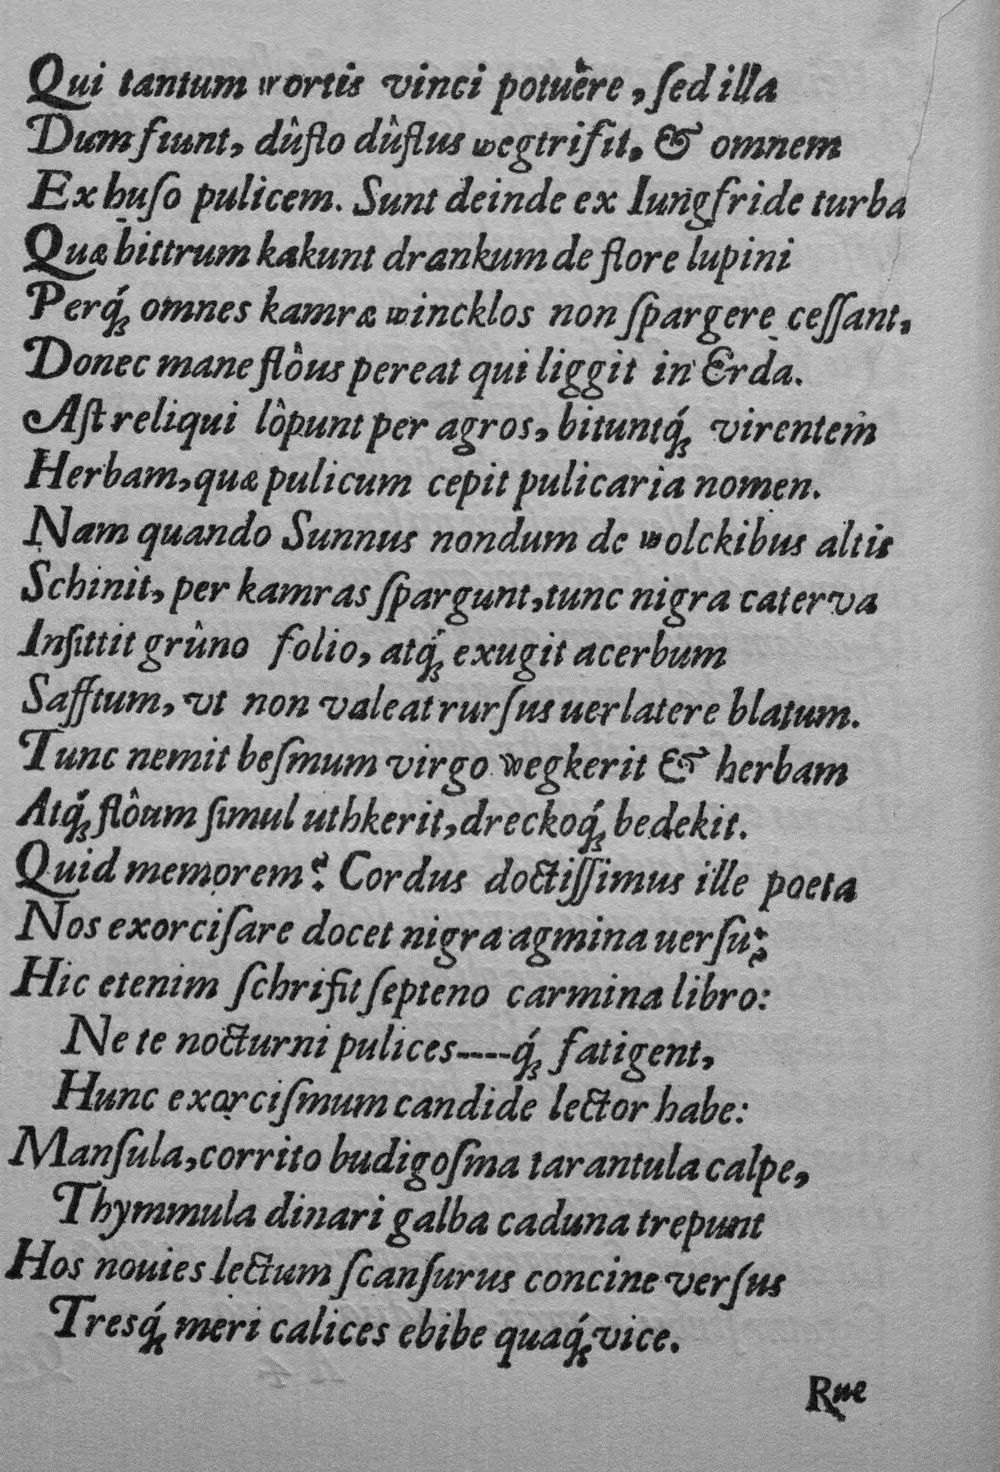 Qui tantum wortis vinci potuêre, ſed illa
Dum ſiunt, dûſto dûſtus wegtrifit, & omnem
Ex huſo pulicem. Sunt deinde ex Iungfride turba
Quæ bittrum kakunt drankum de flore lupini
Perq́ꝫ omnes kamræ wincklos non ſpargere ceſſant,
Donec mane flôus pereat qui liggit in Erda.
Aſt reliqui lôpunt per agros, bituntq́ꝫ virentem
Herbam, quæ pulicum cepit pulicaria nomen.
Nam quando Sunnus nondum de wolckibus altis
Schinit, per kamras ſpargunt, tunc nigra caterva
Inſittit grûno folio, atq́ꝫ exugit acerbum
Safftum, vt non valeat rurſus uerlatere blatum.
Tunc nemit beſmum virgo wegkerit & herbam
Atq́ꝫ flôum ſimul uthkerit, dreckoq́ꝫ bedekit.
Quid memorem? Cordus doctiſſimus ille poeta
Nos exorciſare docet nigra agmina uerſu;
Hic etenim ſchrifit ſepteno carmina libro:
Ne te nocturni pulices----q́ꝫ fatigent,
Hunc exorciſmum candide lector habe:
Manſula, corrito budigoſma tarantula calpe,
Thymmula dinari galba caduna trepunt
Hos nouies lectum ſcanſurus concine verſus
Tresq́ꝫ meri calices ebibe quaq́ꝫ vice.
Rue